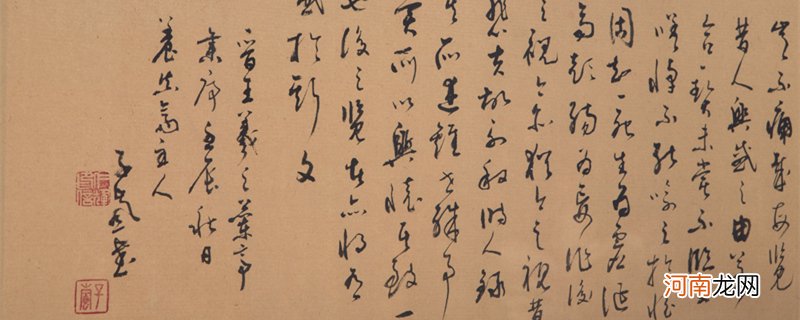 岂不痛哉每覽
昔人興感之由若
合一契未嘗不臨文
嗟悼不能喻之於懷
固知一死生為虛诞
齊彭殤為妄作後
之視今亦猶今之視昔
悲夫故列叙時人錄
其所述雖世殊事
異所以興懷其致一
也後之覽者亦將有
感於斯文
晋王羲之蘭亭
集序壬辰秋日
主人
子書
河南龙网